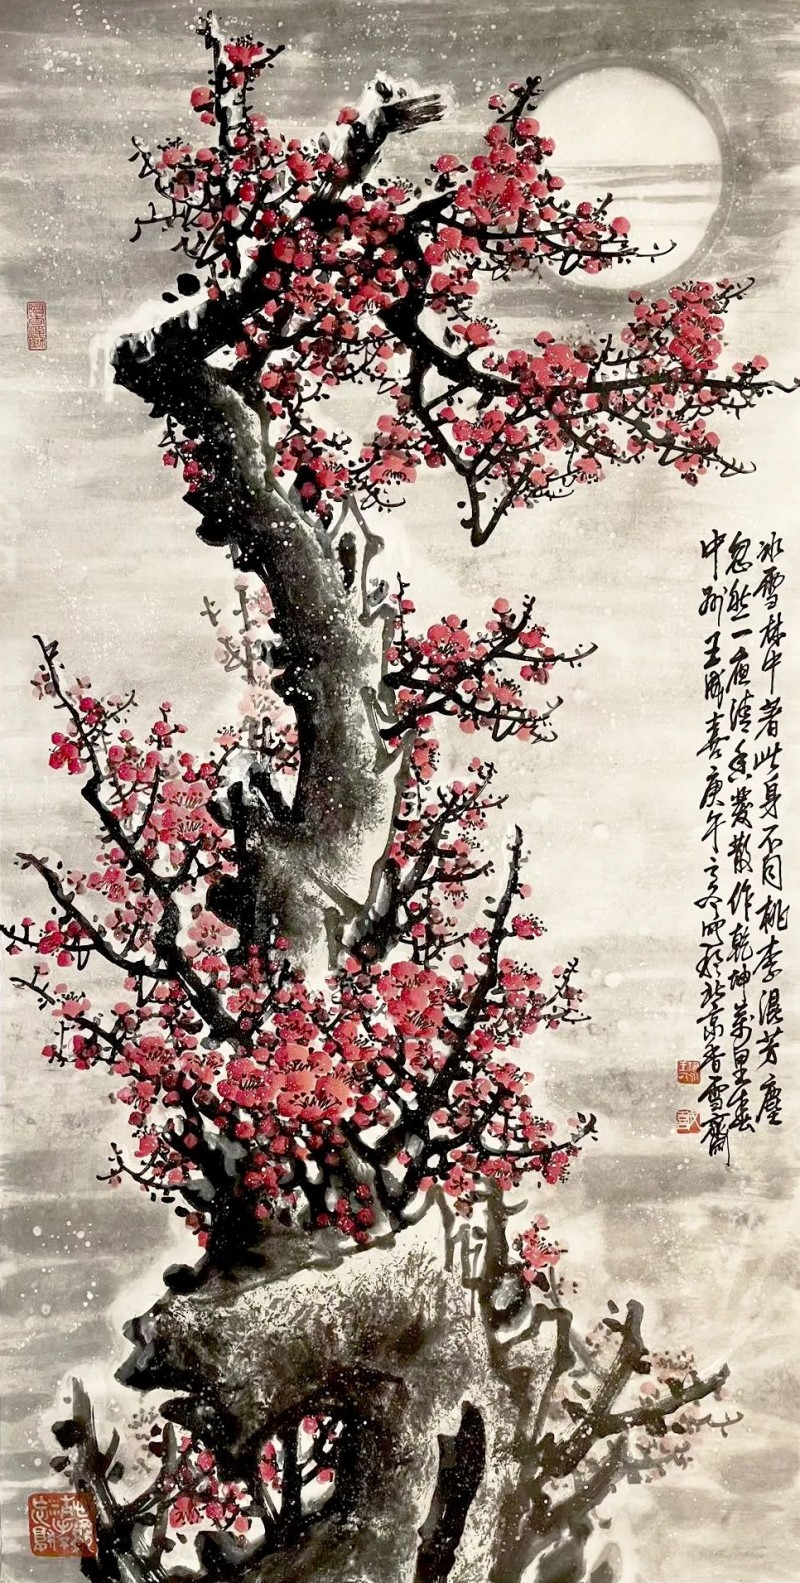 冰雪林中著此身不同桃李混芳塵
忽然一夜清香發散作乾坤萬里春
中州王成喜庚午之冬画於北京香雪齋